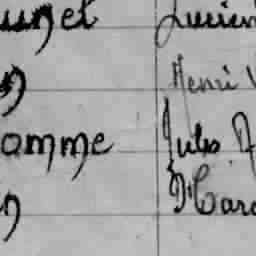 unet Lucien
n Henri V
omme Jules A
n Marc